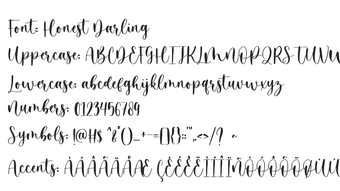 Font: Honest Darling
Uppercase: ABCDEFGHIJKLMNOPQRSTUVW
Lowercase: abcdefghijklmnopqrstuvwxyz
Numbers: 0123456789
Symbols: !@#$ ^&*()_+-=[]{}:;"',.<>/?
Accents: ÀÁÂÃÄÅÆ ÇÈÉÊËÌÍÎÏÑÒÓÔÕÖØ